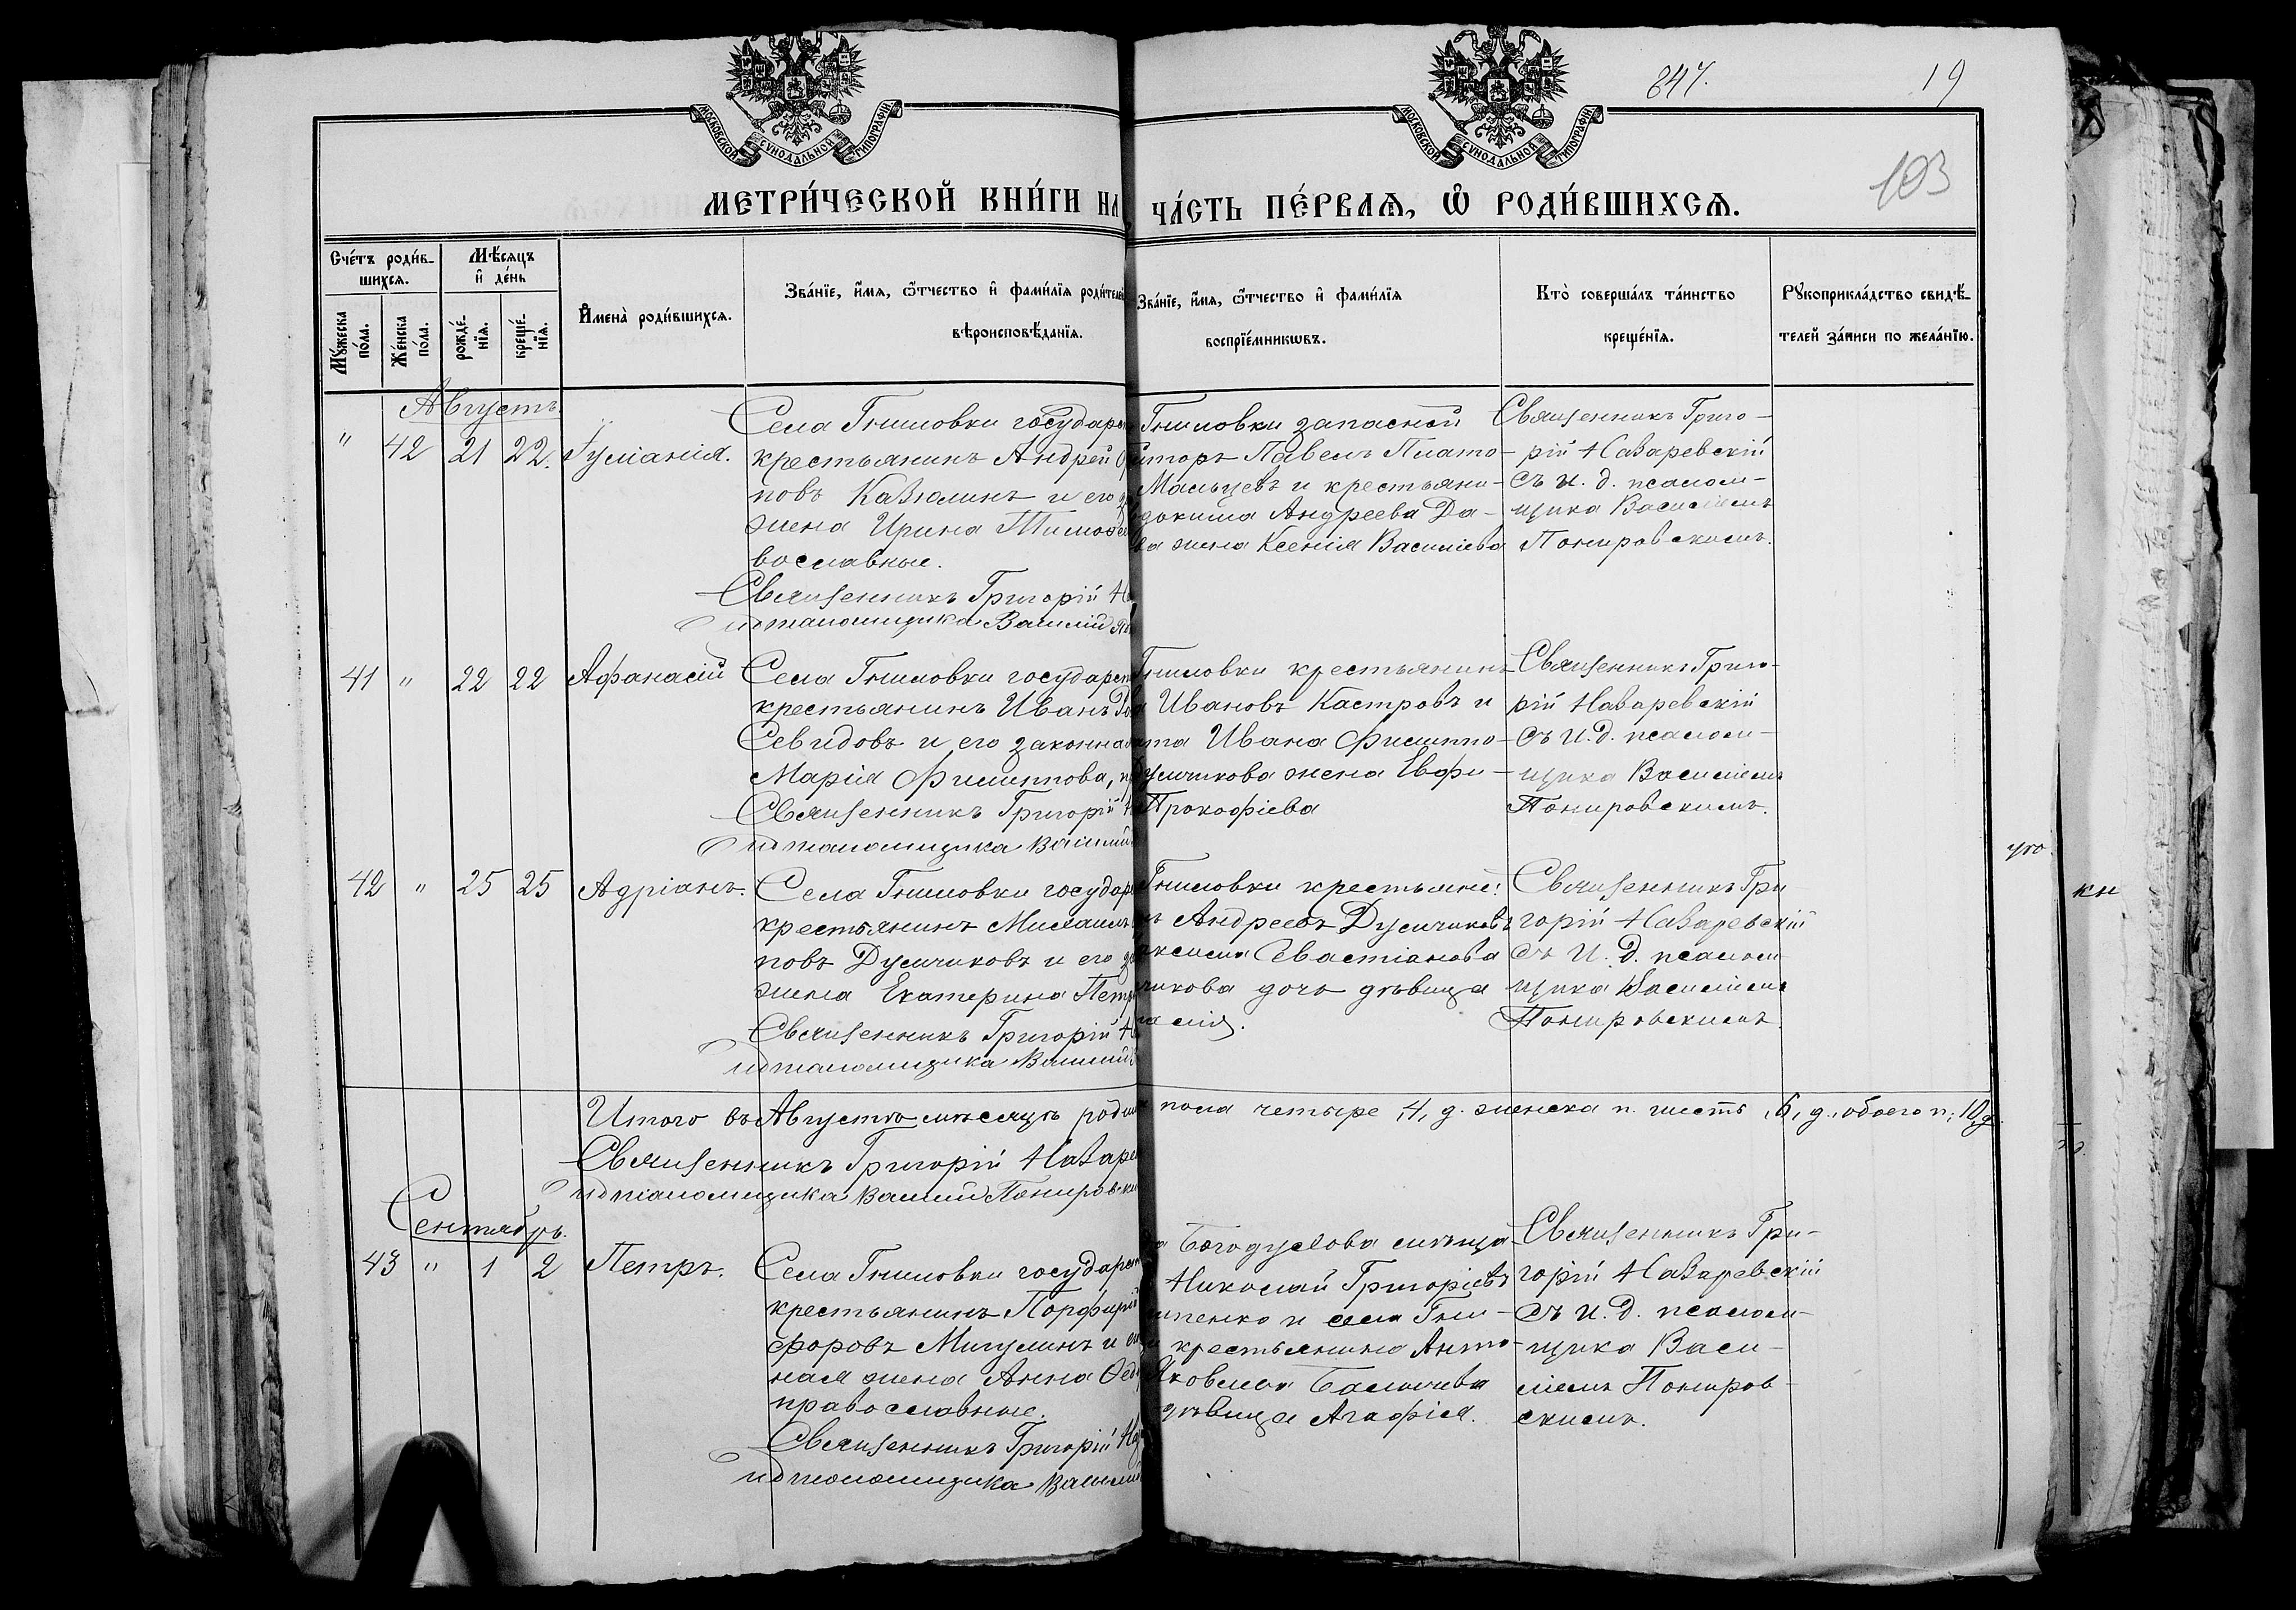 847.
19
103
МОСКОВСКОЙ СѴНОДАЛЬНОЙ ТИПОГРАФІИ
МОСКОВСКОЙ СѴНОДАЛЬНОЙ ТИПОГРАФІИ
МЕТРИ́ЧЕСКОЙ КНИ́ГИ НА
ЧА́СТЬ ПЕ́РВАѦ, Ѽ РОДИ́ВШИХСѦ.
Сче́тъ роди́в-
шихсѧ.
Мѣ́сѧцъ
и҆ де́нь
Мꙋ́жеска
по́ла.
Же́нска
по́ла.
рожде́-
нїѧ.
креще́-
нїѧ.
И҆мена̀ роди́вшихсѧ.
Зва́нїе, и҆́мѧ, ѻ҆́тчество и҆ фами́лїѧ роди́телей
вѣроисповѣ́данїѧ.
Зва́нїе, и҆́мѧ, ѻ҆́тчество и҆ фами́лїѧ
воспрїе́мникѡвъ.
Кто̀ соверша́лъ та́инство
креще́нїѧ.
Рꙋкоприкла́дство свидѣ́-
телей за́писи по жела́нїю.
Августъ.
" 42 21 22. Іуліанія.
Села Гниловки государ
крестьянинъ Андрей
повъ Кавюлинъ и его
жена Ирина Тимоѳе
вославные.
Священникъ Григорій На
и д псаломщика Василій По
Гниловки запасной
Павелъ Плато-
Мальцевъ и крестьяни-
Андреева Да-
ва жена Ксенія Василіева
Священникъ Григо-
рій Назаревскій
съ и. д. псалом-
щика Василіемъ
Понировскимъ.
41 " 22 22 Афанасій
Села Гниловки государст
крестьянинъ Иванъ
Севидовъ и его законна
Марія Филиппова, пр
Священникъ Григорій
и д псаломщика Василій
Гниловки крестьянинъ
Ивановъ Кастровъ и
Ивана Филиппо-
жена Евфи-
Прокофіева
Священникъ Григо-
рій Назаревскій
съ и. д. псалом-
щика Василіемъ
Понировскимъ.
42 " 25 25 Адріанъ.
Села Гниловки государ
крестьянинъ Михаилъ
повъ Думчиковъ и его за
жена Екатерина Петр
Священникъ Григорій
и д псаломщика Василій
Гниловки крестьяне:
Андреевъ Думчиковъ
Севастіанова
чикова дочь дѣвица
Священникъ Гри
горій Назаревскій
съ и. д. псалом
щика Василіемъ
Понировскимъ.
Итого въ Августѣ мѣсяцѣ роди
пола четыре ,4, д. женска п. шесть ,6, д., обоего п; 10 д.
Священникъ Григорій Назаре
и д псаломщика Василій Понировски
Сентябрь.
43 " 1 2 Петръ.
Села Гниловки государ
крестьянинъ Порфирій
форовъ Мигулинъ и
ная жена Анна Ѳед
православные.
Священникъ Григорій На
и д псаломщика Василій
Богодухова мѣща
Николай Григорьевъ
и села Гни-
крестьянина Анто-
Яковлева
дѣвица Агафія.
Священникъ Гри-
горій Назаревскій
съ и. д. псалом-
щика Васи-
ліемъ Пониров-
скимъ.
кн